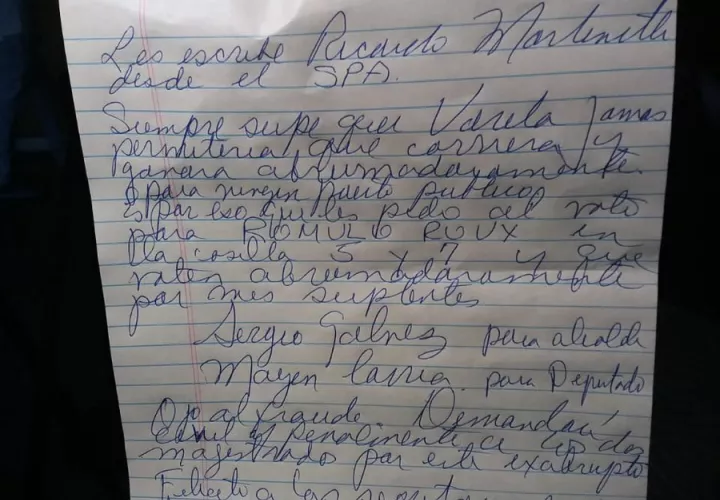 Les escribe Ricardo Martinelli
desde el SPA.
Siempre supe que Varela jamas
permitiria que corriera y
ganara abrumadoramente
para ningun puesto publico
Es por eso que les pido el voto
para ROMULO ROUX en
la casilla 5 y 7 y que
voten abrumadoramente
por mis suplentes
Sergio Galvez para alcalde
Mayer para Diputado
Ojo al fraude. Demandaré
civil y penalmente a
magistrado por este exabrupto
Felicito a las